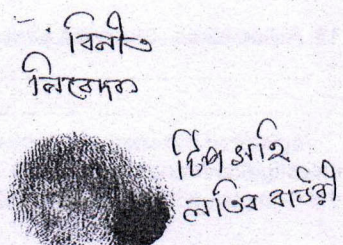 বিনীত
নিবেদক
টিপ সহি
লতিব বাউরী